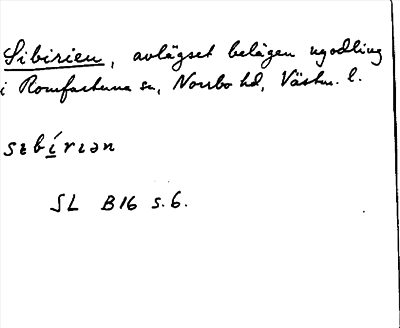 Sibirien, avlägset belägen nyodling
i Romfartuna sn, Norrbo hd, Västm. l.
sɩbírɩən
SL B16 s. 6.